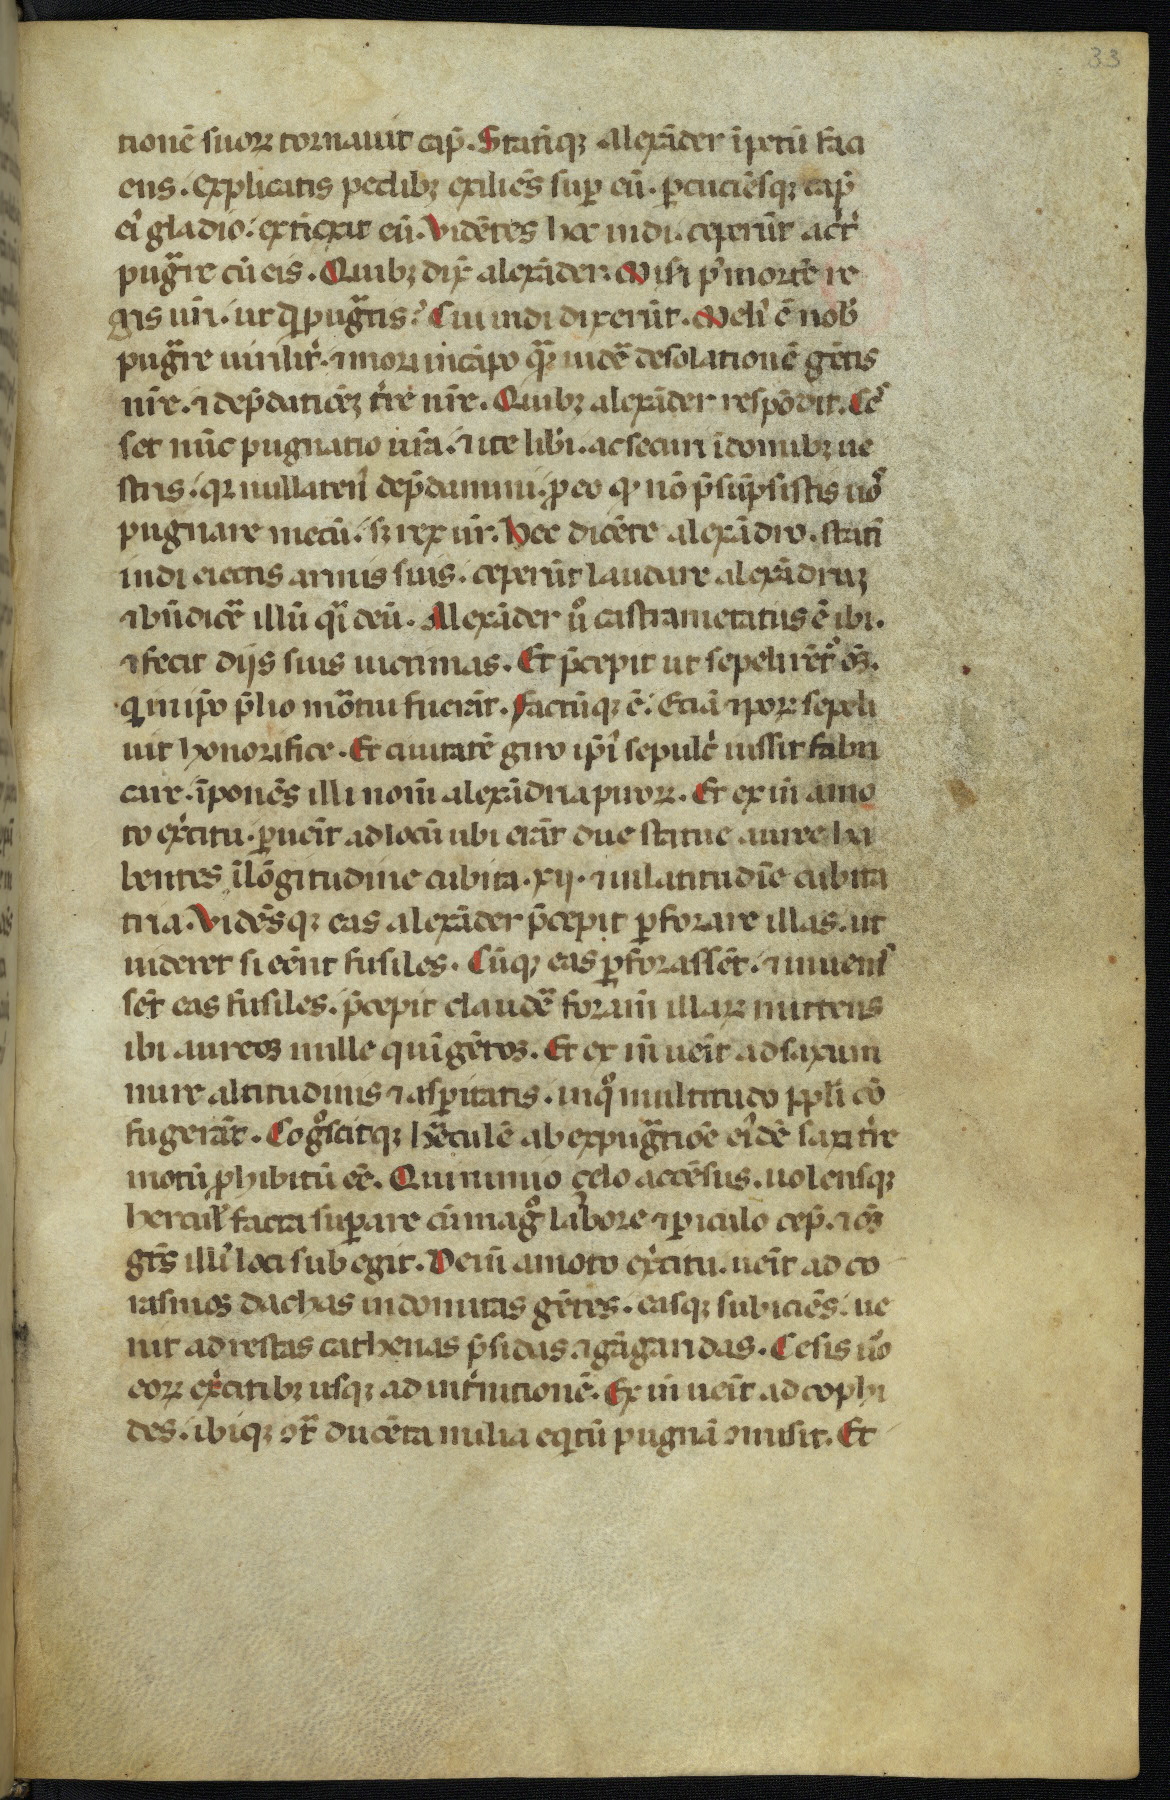 33
tionē suoꝝ tornauit cap̄. Statīqꝫ Alexāder īpetū faci
ens. explicatis pedibꝫ exiliēs suꝑ eū. ꝑcuciēsqꝫ cap̄
ei᾽ gladio. extīxit eū. Vidētes hec indi. ceperūt acͥtͥ
pugͣre cū eis. Quibꝫ dix̄ alexāder. Nisi p᾽ mortē re
gis uri. ut qͥd pugͣtis? Cui indi dixerūt. Meli᾽ ē nob̄
pugͣre uirilit᾽. ⁊ mori in cāpo qͣꝫ uidē desolationē gētis
nr̄e. ⁊ dep̄daticēꝫ t᾽re nr̄e. Quibꝫ alexāder respōdit. Ce᾽
set nūc pugnatio ur̄a. ⁊ ite lib᾽i. ac securi ī domibꝫ ue
stris. qꝛ nullaten᾽ dep̄damini. ꝓ eo qꝫ nō p̄sūpsistis uoˢ
pugnare mecū. sꝫ rex ur̄. Hec dicēte alexādro. statī
indi eiectis armis suis. ceperūt laudare alexādruꝫ
⁊ bn̄dicē illū qͣi deū. Alexāder uͦ castrametatus ē ibi.
⁊ fecit dijs suis uictimas. Et p̄cepit ut sepelirēt᾽ oēs.
qͥ in ip̄o p̄lio moͬtui fuerāt. Factūqꝫ ē. Eciā ⁊ poꝝ sepeli
uit honorifice. Et ciuitatē giro ip̄i᾽ sepulc᾽ iussit fabri
care. īponēs illi nom̄ alexādria puoꝝ. Et exin̄ amo
to ex᾽citu. ꝑuen̄it ad locū ubi erāt due statue auree ha
bentes ī lōgitudine cubita. xij. ⁊ in latitudīe cubita
tria. Vidēsqꝫ eas alexāder p̄cepit ꝑforare illas. ut
uideret si eēnt fusiles. Cūqꝫ eas ꝑforassēt. ⁊ inuenis᾽
sēt eas fusiles. p̄cepit claudē foram̄ illaꝝ mittens
ibi aureos mille quīgētos. Et ex in̄ uen̄it ad saxum
mire altitudinis ⁊ asꝑitatis. in qͦ multitudo ppl̄i cō
fugerāt. Cogͦscitqꝫ h᾽culē ab expugͣtiōe ei᾽dē saxi t᾽re
motū ꝓhibitū eē. Qui nimio çelo accēsus. uolensqꝫ
hercul᾽ facta suꝑare cū magͦ labore ⁊ ꝑiculo cep̄. ⁊ oēs
gētes illi᾽ loci subegit. Dein̄ amoto ex᾽citu. uen̄it ad co
rasmos dachas indomitas gētes. easqꝫ subiciēs. ue
nit ad restas cathenas p̄sidas. ⁊ gāgaridas. Cesis u᾽o
eoꝝ ex᾽citibꝫ usqꝫ ad int᾽nitionē. Ex in̄ uen̄it ad cophi
des. ibiqꝫ ꝯtͣ ducēta milia eqͥtū pugnā ꝯmisit. Et